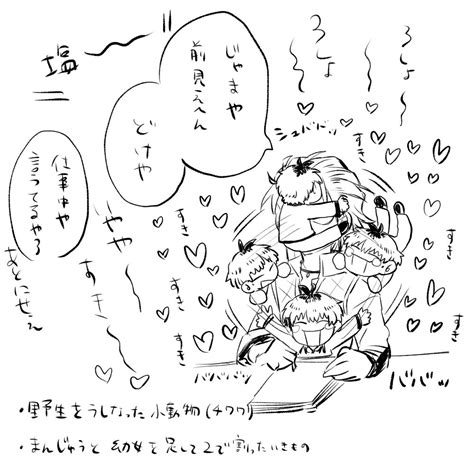 ろしょ〜
ろしょ〜
じゃまや
前見えへん
どけや
塩〜
仕事中や
言うてるやろ
あとにせえ
やや〜
すき〜
シュババッ
すき
すき
すき
すき
すき
すき
すき
すき
すき
バババッ
ババッ
・野生をうしなった小動物(チワワ)
・まんじゅうと幼女を足して2で割ったいきもの